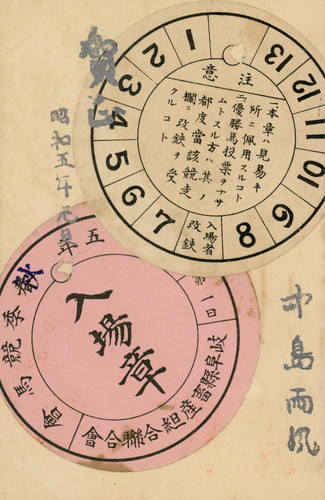 賀正
昭和五年元旦
中島雨風
注意
一、本章ハ見易キ
所ニ佩用スルコト
二、優勝馬投票ヲナサ
ムトスル方ハ其ノ
都度當該競走
欄ニ改鋏ヲ受
クルコト
1
2
3
4
5
6
7
入場者
改鋏
8
9
10
11
12
13
入場章
五年
秋季競馬會
第一日
岐阜縣畜産組合聯合會